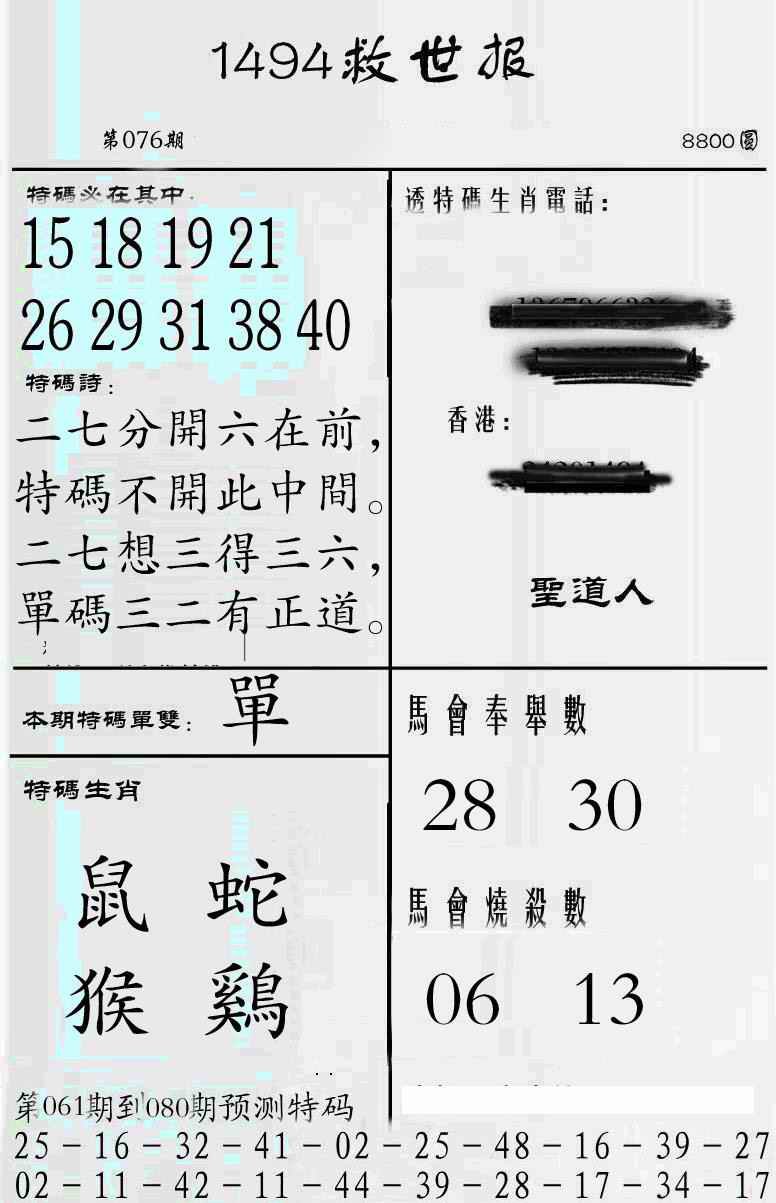 1494救世报
第076期
8800圓
特碼必在其中:
15 18 19 21
26 29 31 38 40
特碼詩:
二七分開六在前，
特碼不開此中間。
二七想三得三六，
單碼三二有正道。
本期特碼單雙: 單
特碼生肖
鼠 蛇
猴 鷄
透特碼生肖電話:
香港:
聖道人
馬會奉舉數
28 30
馬會燒殺數
06 13
第061期到080期预测特码
25-16-32-41-02-25-48-16-39-27
02-11-42-11-44-39-28-17-34-17